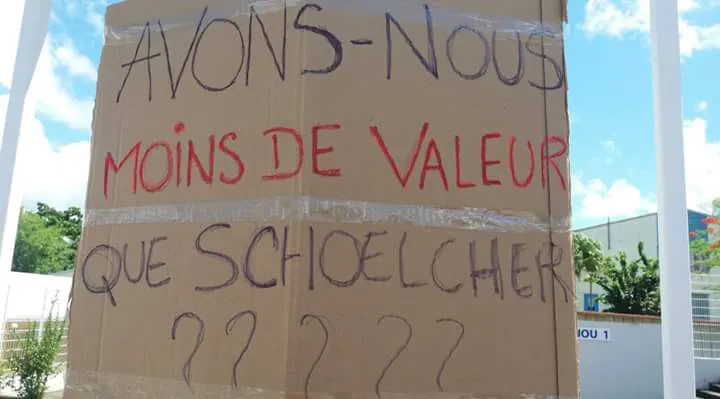 AVONS-NOUS
MOINS DE VALEUR
QUE SCHOELCHER
?????
JOU 1